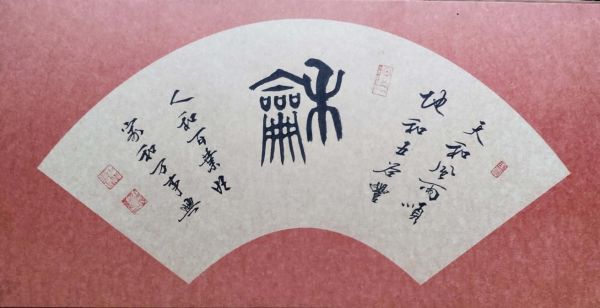 天和风雨順
地和五谷豐
龢
人和百業旺
家和万事興